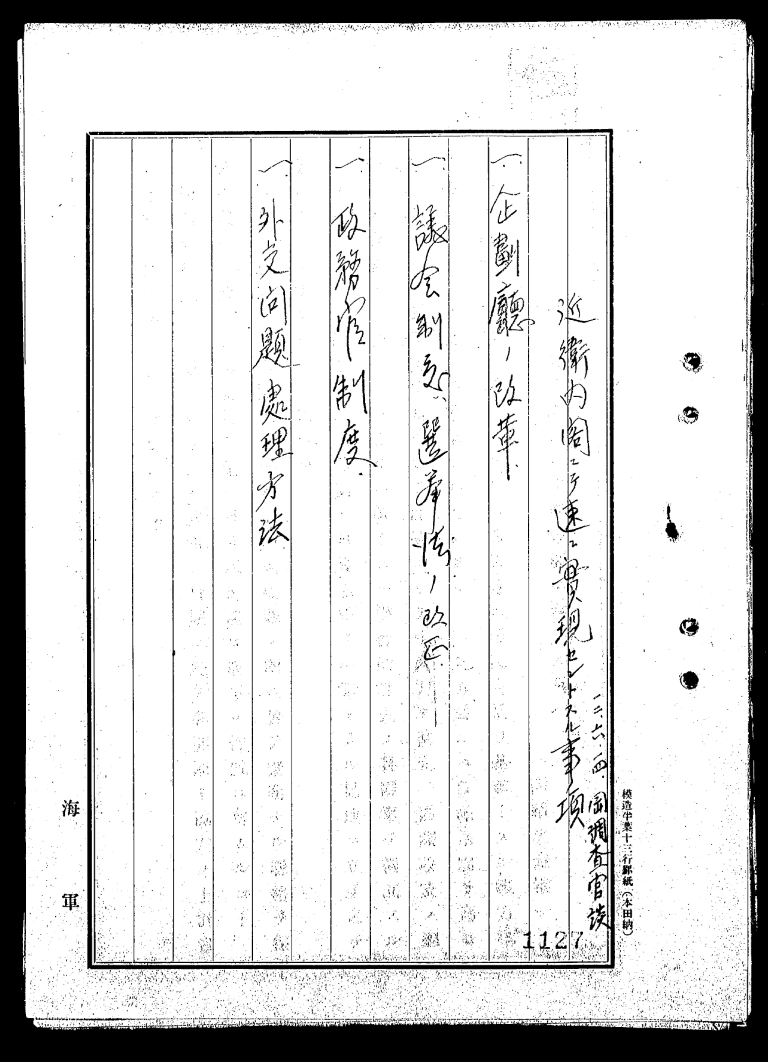 模造半葉十三行罫紙(本田納)
一二、六、四、岡調査官談
近衛内閣ニテ速ニ實現セントスル事項
一、企劃廳ノ改革、
一、議会制度、選挙法ノ改正、
一、政務官制度、
一、外交問題處理方法
海軍
1127